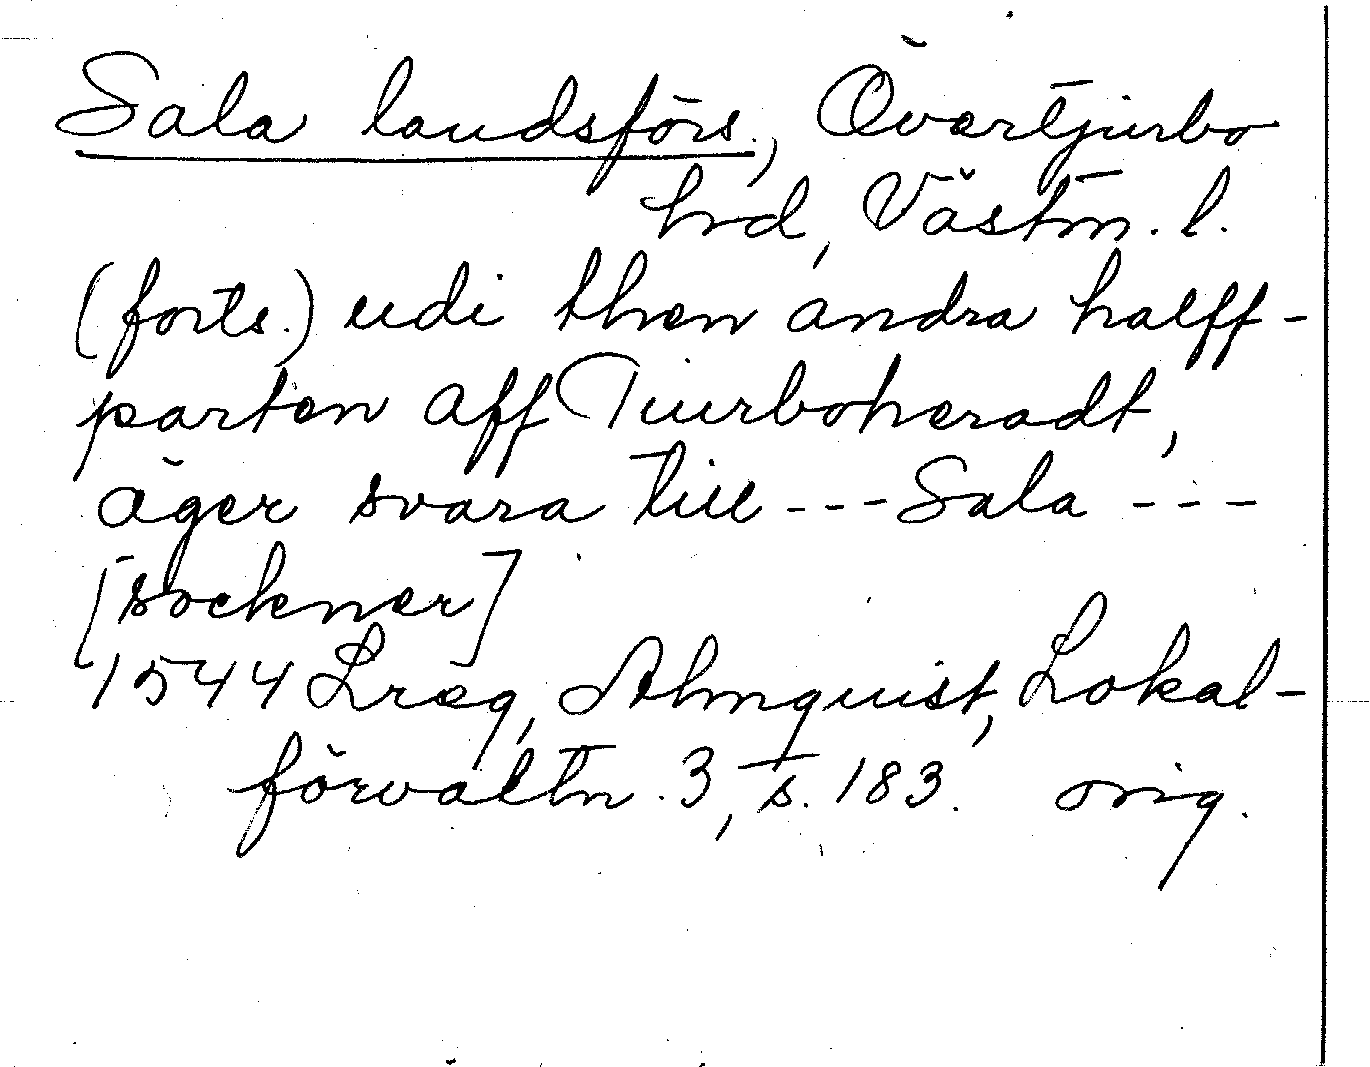 Sala landsförs., Övertjurbo
hrd, Västm. l.
(forts.) udi then andra halff-
parten aff Tiurboheradt,
äger svara till --- Sala ---
[sockner]
1544 Lreg, Almquist, Lokal-
förvaltn. 3, s. 183. orig.